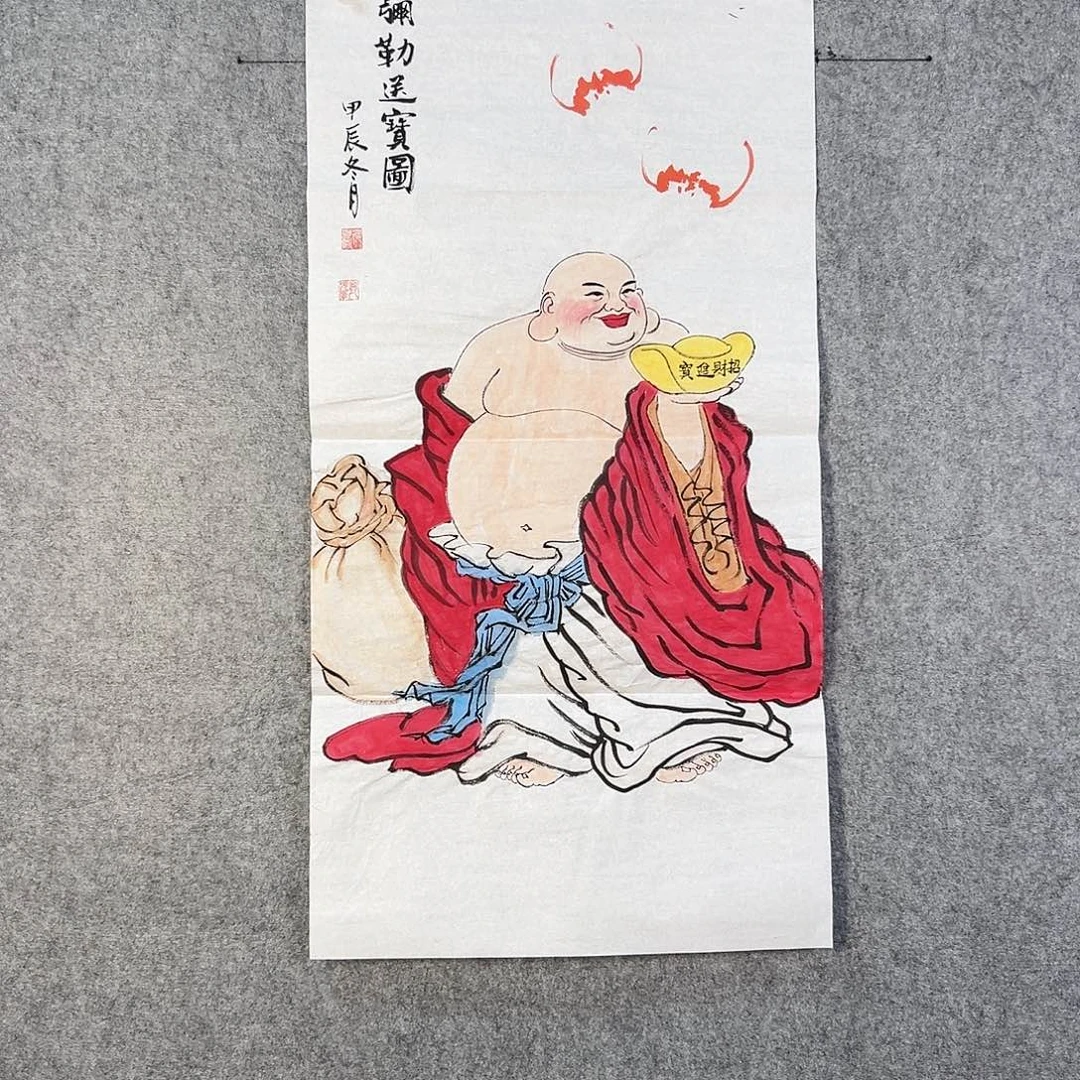 彌勒送寶圖
甲辰冬月
招財進寶